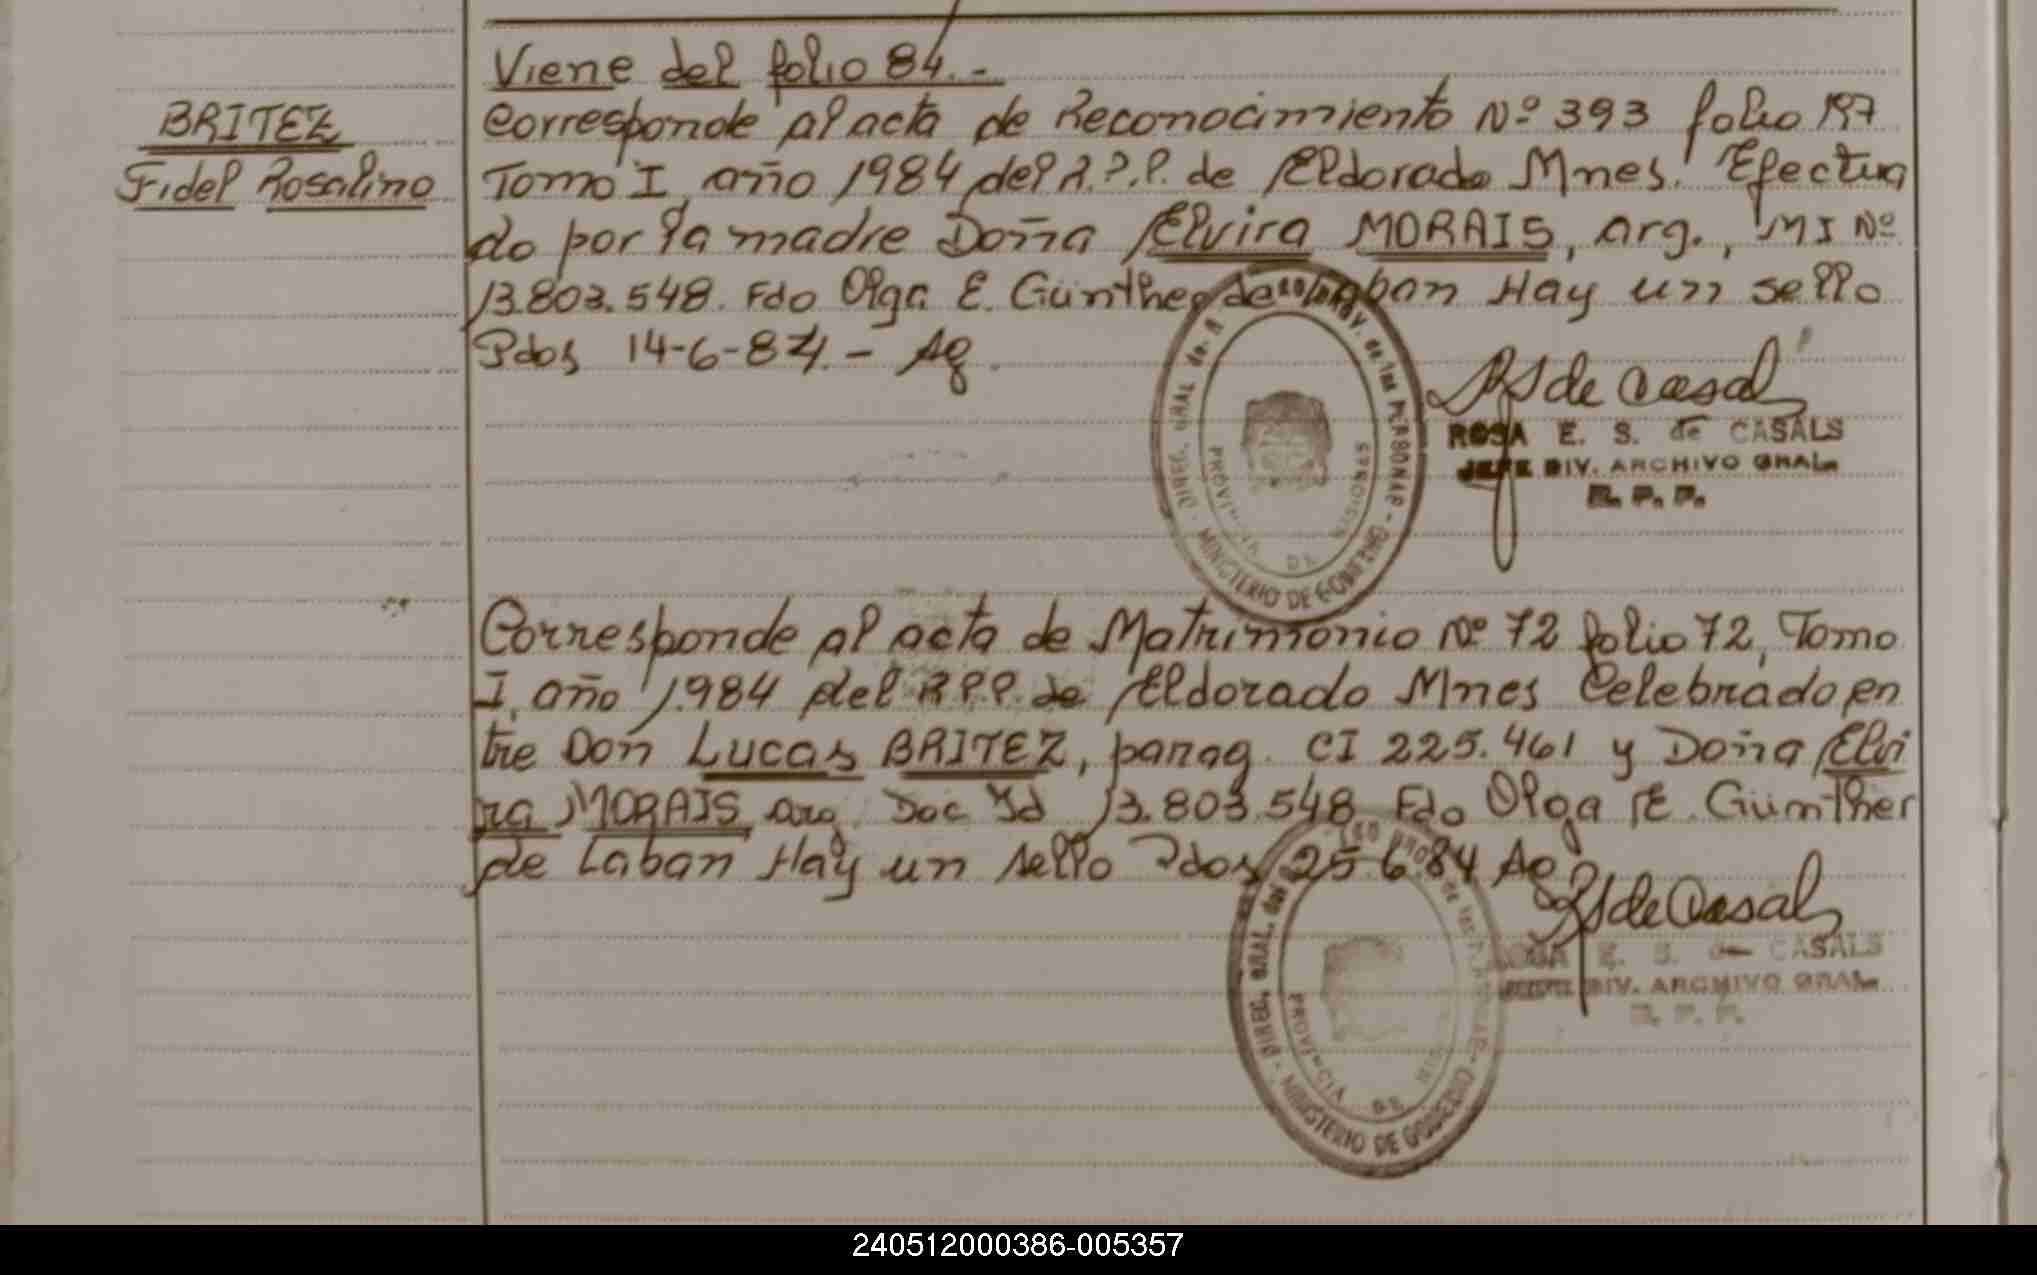 Viene del folio 84.-
BRITEZ
Fidel Rosalino
Corresponde al acta de Reconocimiento Nº 393 folio 197
Tomo I, año 1984 del R.P.P. de Eldorado Mnes. Efectua
do por la madre Doña Elvira MORAIS, arg., MI Nº
13.803.548. Fdo Olga E. Gunther de Laban Hay un sello
Pdos 14-6-84.-
RS de Casals
ROSA E. S. de CASALS
JEFE DIV. ARCHIVO GRAL.
R. P. P.
DIREC. GRAL de
de las PERSONAS - MINISTERIO DE GOBIERNO
PROVINCIA DE MISIONES
Corresponde al acta de Matrimonio Nº 72 folio 72, Tomo
I, año 1.984 del R.P.P. de Eldorado Mnes Celebrado en
tre Don Lucas BRITEZ, parag. CI 225.461 y Doña Elvi
ra MORAIS arg. Doc Id 13.803.548 Fdo Olga E. Günther
de Laban Hay un sello Pdos 25.6.84
RS de Casals
ROSA E. S. de CASALS
JEFE DIV. ARCHIVO GRAL.
R. P. P.
DIREC. GRAL. del
de las - MINISTERIO DE GOBIERNO
PROVINCIA DE
240512000386-005357